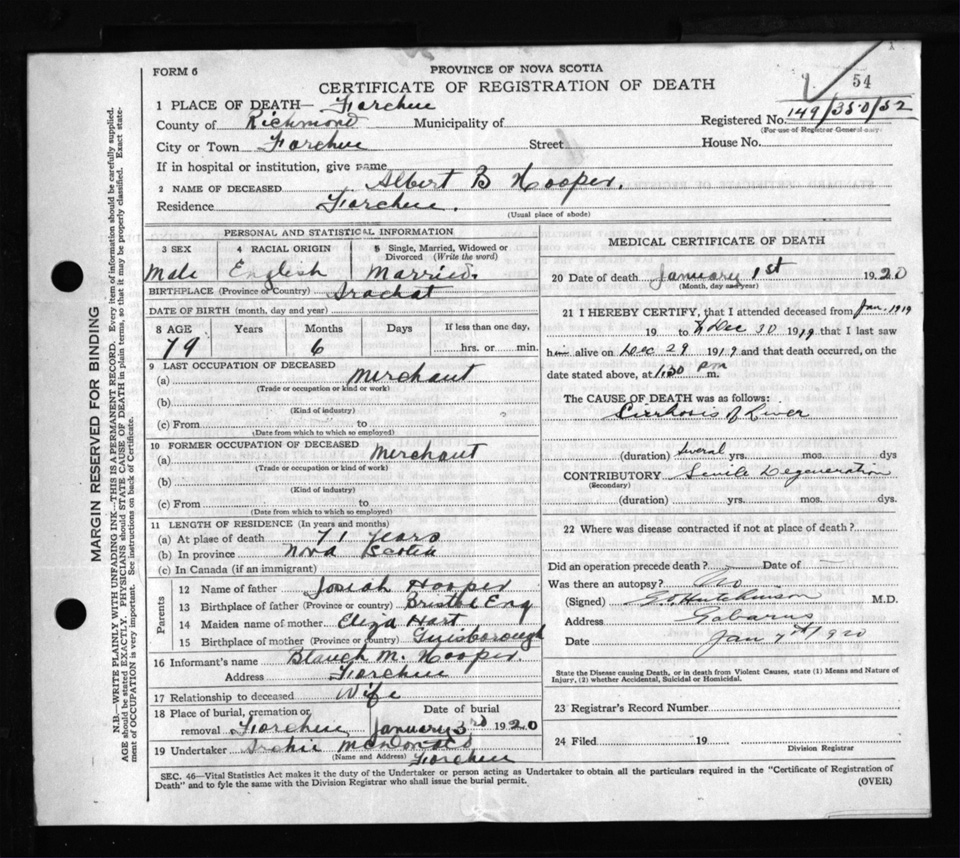 FORM 6
PROVINCE OF NOVA SCOTIA
54
CERTIFICATE OF REGISTRATION OF DEATH
1 PLACE OF DEATH— Forchu
Registered No. 149/350/52
(For use of Registrar General only)
County of Richmond Municipality of
City or Town Forchu Street House No.
If in hospital or institution, give name
2 NAME OF DECEASED Albert B Hooper.
Residence Forchu.
(Usual place of abode)
PERSONAL AND STATISTICAL INFORMATION
3 SEX 4 RACIAL ORIGIN 5 Single, Married, Widowed or Divorced (Write the word)
Male English Married.
BIRTHPLACE (Province or Country) Arachat
DATE OF BIRTH (month, day and year)
8 AGE Years Months Days If less than one day,
79 6 hrs. or min.
9 LAST OCCUPATION OF DECEASED
(a) Merchant
(Trade or occupation or kind or work)
(b)
(Kind of industry)
(c) From to
(Date from which to which so employed)
10 FORMER OCCUPATION OF DECEASED
(a) Merchant
(Trade or occupation or kind of work)
(b)
(Kind of industry)
(c) From to
(Date from which to which so employed)
11 LENGTH OF RESIDENCE (In years and months)
(a) At place of death 71 years
(b) In province Nova Scotia
(c) In Canada (if an immigrant)
Parents
12 Name of father Josiah Hooper
13 Birthplace of father (Province or country) Bristol Eng
14 Maiden name of mother Eliza Hart
15 Birthplace of mother (Province or country) Guisborough
16 Informant's name Blanch M. Hooper.
Address Forchu
17 Relationship to deceased Wife
18 Place of burial, cremation or Date of burial
removal Forchu January 3rd 1920
19 Undertaker Archie McDonald
(Name and Address) Forchu
MEDICAL CERTIFICATE OF DEATH
20 Date of death January 1st 1920
(Month, day and year)
21 I HEREBY CERTIFY, that I attended deceased from Jan. 1919
19 to Dec 30 1919 that I last saw
him alive on Dec 29 1919 and that death occurred, on the
date stated above, at 1.30 pm m.
The CAUSE OF DEATH was as follows:
Cirrhosis of Liver
(duration) Several yrs. mos. dys
CONTRIBUTORY Senile Degeneration
(Secondary)
(duration) yrs. mos. dys.
22 Where was disease contracted if not at place of death?
Did an operation precede death? Date of
Was there an autopsy? No
(Signed) Hutchinson M.D.
Address Gabarus
Date Jan 7th 1920
State the Disease causing Death, or in death from Violent Causes, state (1) Means and Nature of
Injury, (2) whether Accidental, Suicidal or Homicidal.
23 Registrar's Record Number
24 Filed 19
Division Registrar
SEC. 46—Vital Statistics Act makes it the duty of the Undertaker or person acting as Undertaker to obtain all the particulars required in the "Certificate of Registration of
Death" and to fyle the same with the Division Registrar who shall issue the burial permit.
(OVER)
MARGIN RESERVED FOR BINDING
N.B.—WRITE PLAINLY WITH UNFADING INK—THIS IS A PERMANENT RECORD. Every item of information should be carefully supplied.
AGE should be stated EXACTLY. PHYSICIANS should STATE CAUSE OF DEATH in plain terms, so that it may be properly classified. Exact state-
ment of OCCUPATION is very important. See instructions on back of Certificate.